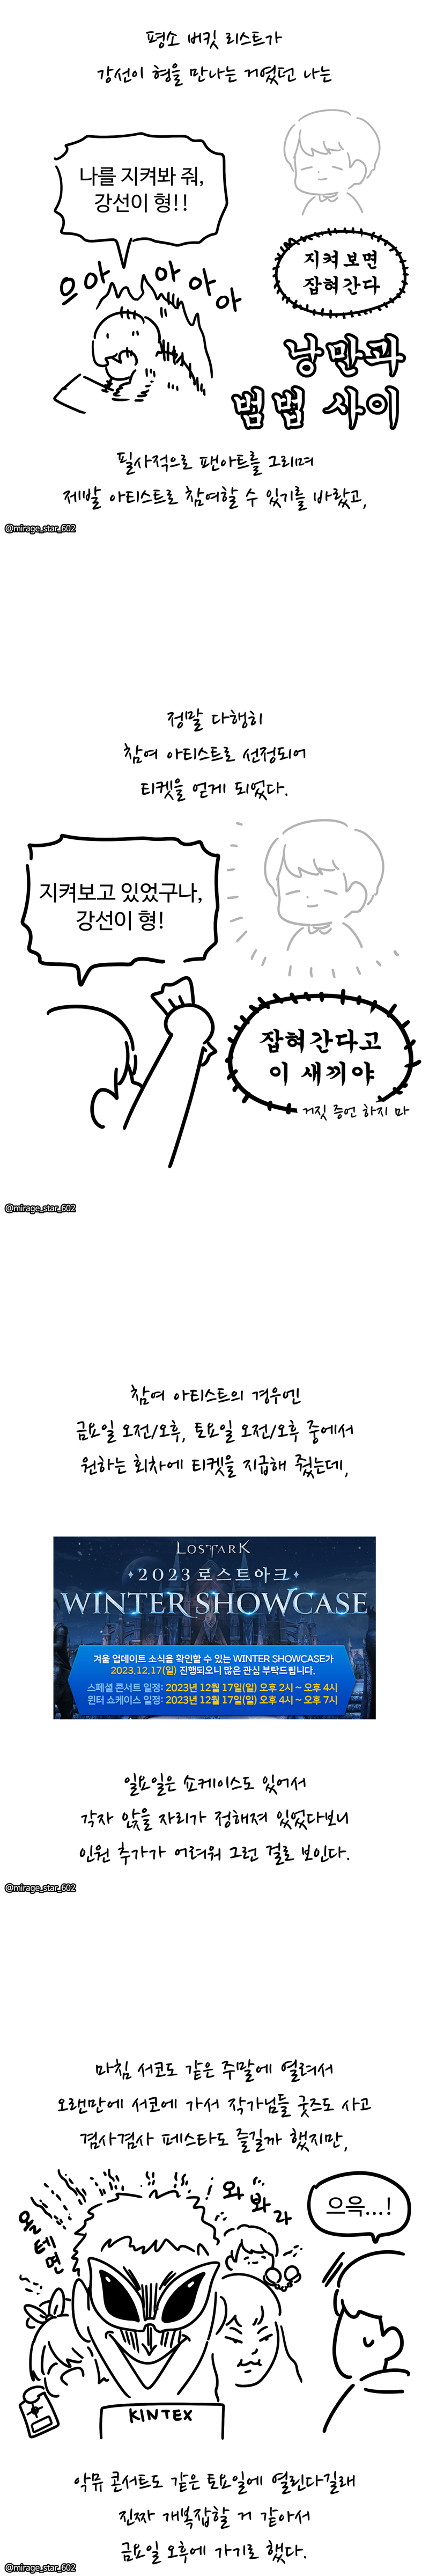 평소 버킷 리스트가
강선이 형을 만나는 거였던 나는
나를 지켜봐 줘,
강선이 형!!
으아아아아
지켜보면
잡혀간다
낭만과
범법 사이
필사적으로 팬아트를 그리며
제발 아티스트로 참여할 수 있기를 바랐고,
@mirage_star_602
정말 다행히
참여 아티스트로 선정되어
티켓을 얻게 되었다.
지켜보고 있었구나,
강선이 형!
잡혀간다고
이 새끼야
거짓 증언 하지 마
@mirage_star_602
참여 아티스트의 경우엔
금요일 오전/오후, 토요일 오전/오후 중에서
원하는 회차에 티켓을 지급해 줬는데,
LOST ARK
2023 로스트아크
WINTER SHOWCASE
겨울 업데이트 소식을 확인할 수 있는 WINTER SHOWCASE가
2023.12.17(일) 진행되오니 많은 관심 부탁드립니다.
스페셜 콘서트 일정: 2023년 12월 17일(일) 오후 2시 ~ 오후 4시
윈터 쇼케이스 일정: 2023년 12월 17일(일) 오후 4시 ~ 오후 7시
일요일은 쇼케이스도 있어서
각자 앉을 자리가 정해져 있었다보니
인원 추가가 어려워 그런 걸로 보인다.
@mirage_star_602
마침 서코도 같은 주말에 열려서
오랜만에 서코에 가서 작가님들 굿즈도 사고
겸사겸사 페스타도 즐길까 했지만,
올테면
와봐라
으윽...!
KINTEX
악뮤 콘서트도 같은 토요일에 열린다길래
진짜 개복잡할 거 같아서
금요일 오후에 가기로 했다.
@mirage_star_602